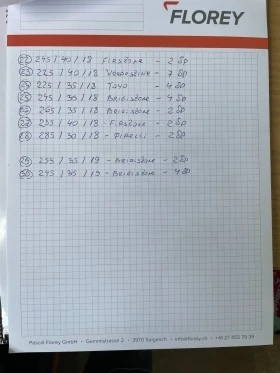 FLOREY
22 245/40/18 FIRSZONE - 2 SD
23 225/40/18 VREDESZINE - 3 SD
24 225/35/18 TOYO - 4 SD
25 245/35/18 BRIGISZONE - 4 SD
26 265/35/18 BRIGISZONE - 2 SD
27 235/40/18 - FIRSZONE - 2 SD
28 285/30/18 - PIRELLI - 2 SD
29 255/35/19 - BRIGISZONE - 2 SD
30 245/35/19 - BRIGISZONE - 4 SD
Pascal Florey GmbH • Gemmistrasse 2 • 3970 Salgesch • info@florey.ch • +41 27 455 79 39